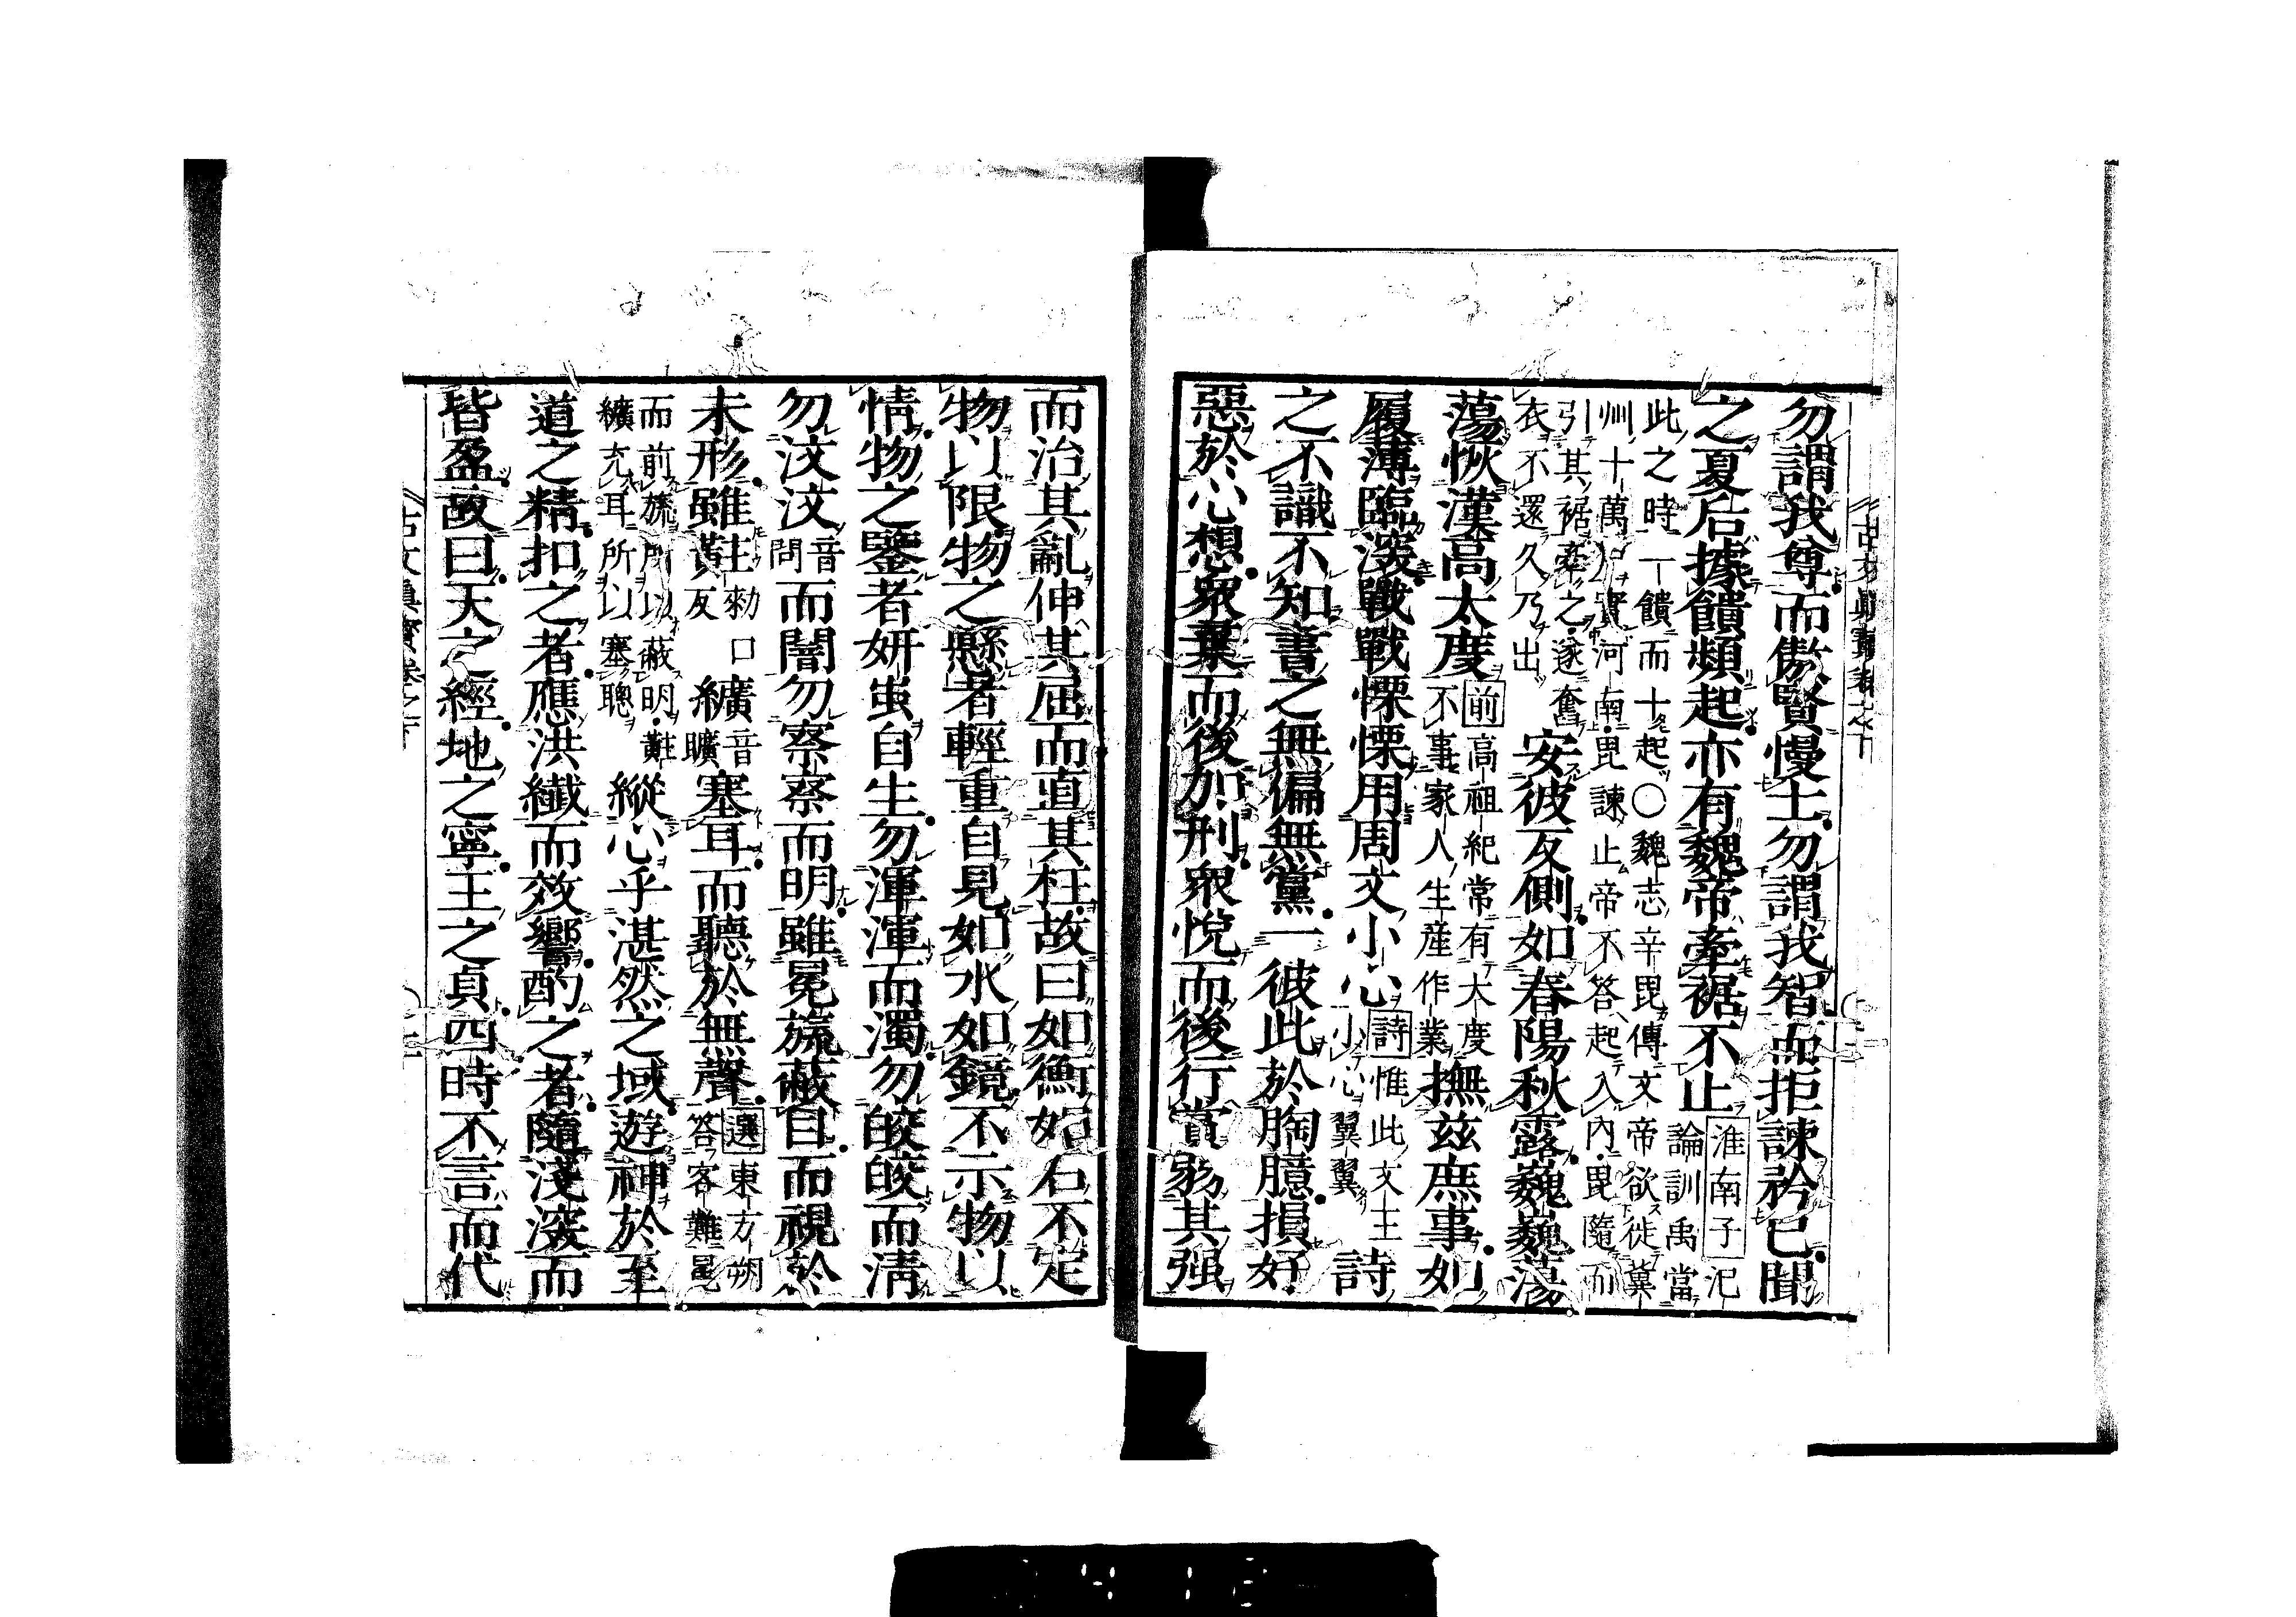 勿謂我尊而傲賢慢士勿謂我智而拒諫矜己聞
之夏后據饋頻起亦有魏帝牽裾不止淮南子氾
論訓禹當
此之時一饋而十起○魏志辛毘傳文帝欲徙冀
州十萬戸實河南毘諫止帝不答起入內毘隨而
引其裾牽之遂奮
衣不還久乃出
安彼反側如春陽秋露巍巍蕩
蕩恢漢高大度前高祖紀常有大度
不事家人生産作業撫玆庶事如
履薄臨深戰戰慄慄用周文小心詩惟此文王
小心翼翼詩
之不識不知書之無偏無黨一彼此於胸臆損好
惡於心想衆棄而後加刑衆悅而後行賞弱其强
而治其亂伸其屈而直其枉故曰如衡如石不定
物以限物之懸者輕重自見如水如鏡不示物以
情物之鑒者妍蚩自生勿渾渾而濁勿皎皎而淸
勿汶汶音
問而闇勿察察而明雖冕旒蔽目而視於
未形雖黈主勑口
反纊音
曠塞耳而聽於無聲選東方朔
答客難冕
而前旒所以蔽明黈
纊充耳所以塞聰
縱心乎湛然之域遊神於至
道之精扣之者應洪纖而效響酌之者隨淺深而
皆盈故曰天之經地之寧王之貞四時不言而代
古文眞寶卷之十